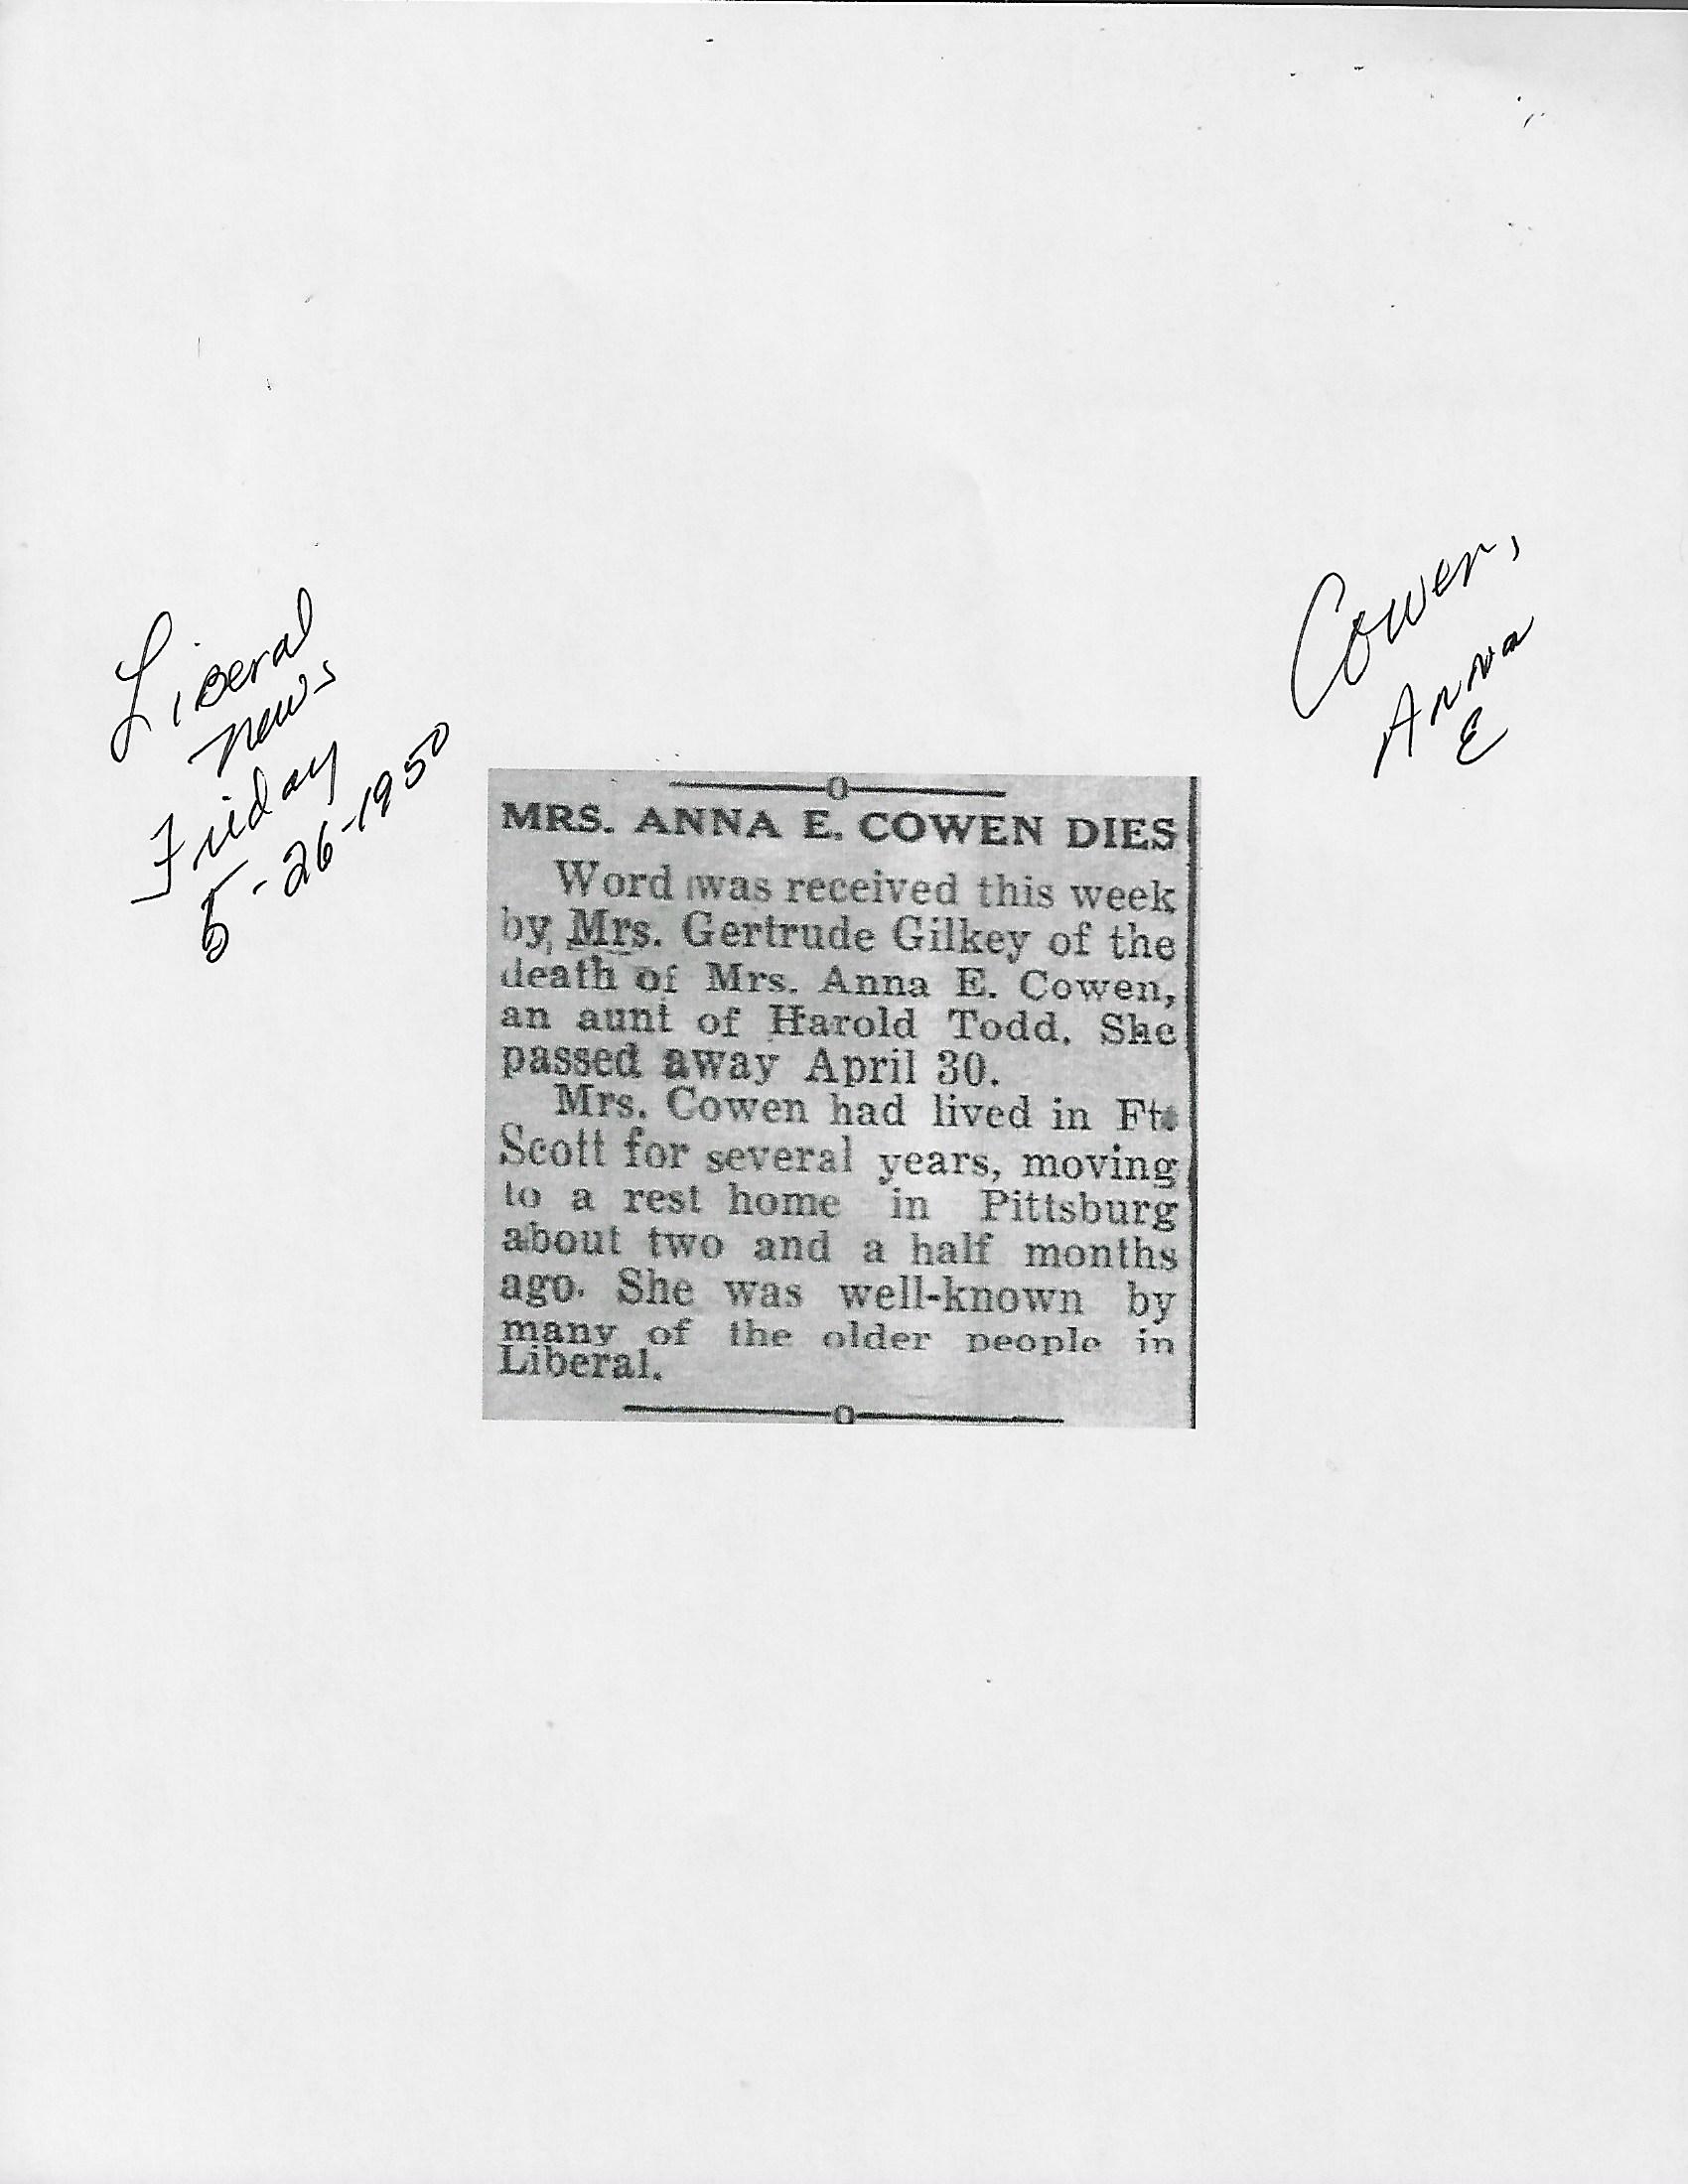 Liberal
News
Friday
5-26-1950
Cowen,
Anna
E
MRS. ANNA E. COWEN DIES
Word was received this week
by Mrs. Gertrude Gilkey of the
death of Mrs. Anna E. Cowen,
an aunt of Harold Todd. She
passed away April 30.
Mrs. Cowen had lived in Ft.
Scott for several years, moving
to a rest home in Pittsburg
about two and a half months
ago. She was well-known by
many of the older people in
Liberal.